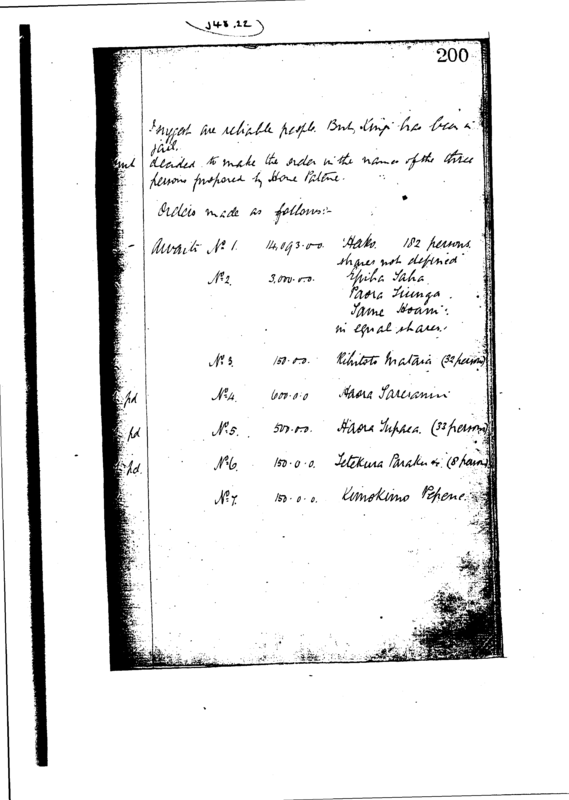 J48.22
200
I suggest are reliable people. But Kingi has been in
jail.
decided to make the order in the names of the three
persons proposed by Hone Patene.
Orders made as follows:-
- Awaiti No 1. 14,093.0.0. Hako. 182 persons
shares not defined
No 2. 3,000.0.0. Epiha Taha
Paora Tiunga
Tame Hoani
in equal shares.
No 3. 150.0.0. Rihitoto Mataia (32 persons)
pd No 4. 600.0.0 Haora Tareranui
pd No 5. 500.0.0. Haora Tupaea. (33 persons)
pd. No 6. 150.0.0. Tetekura (8 persons)
No 7. 150.0.0. Kimokimo Pepene